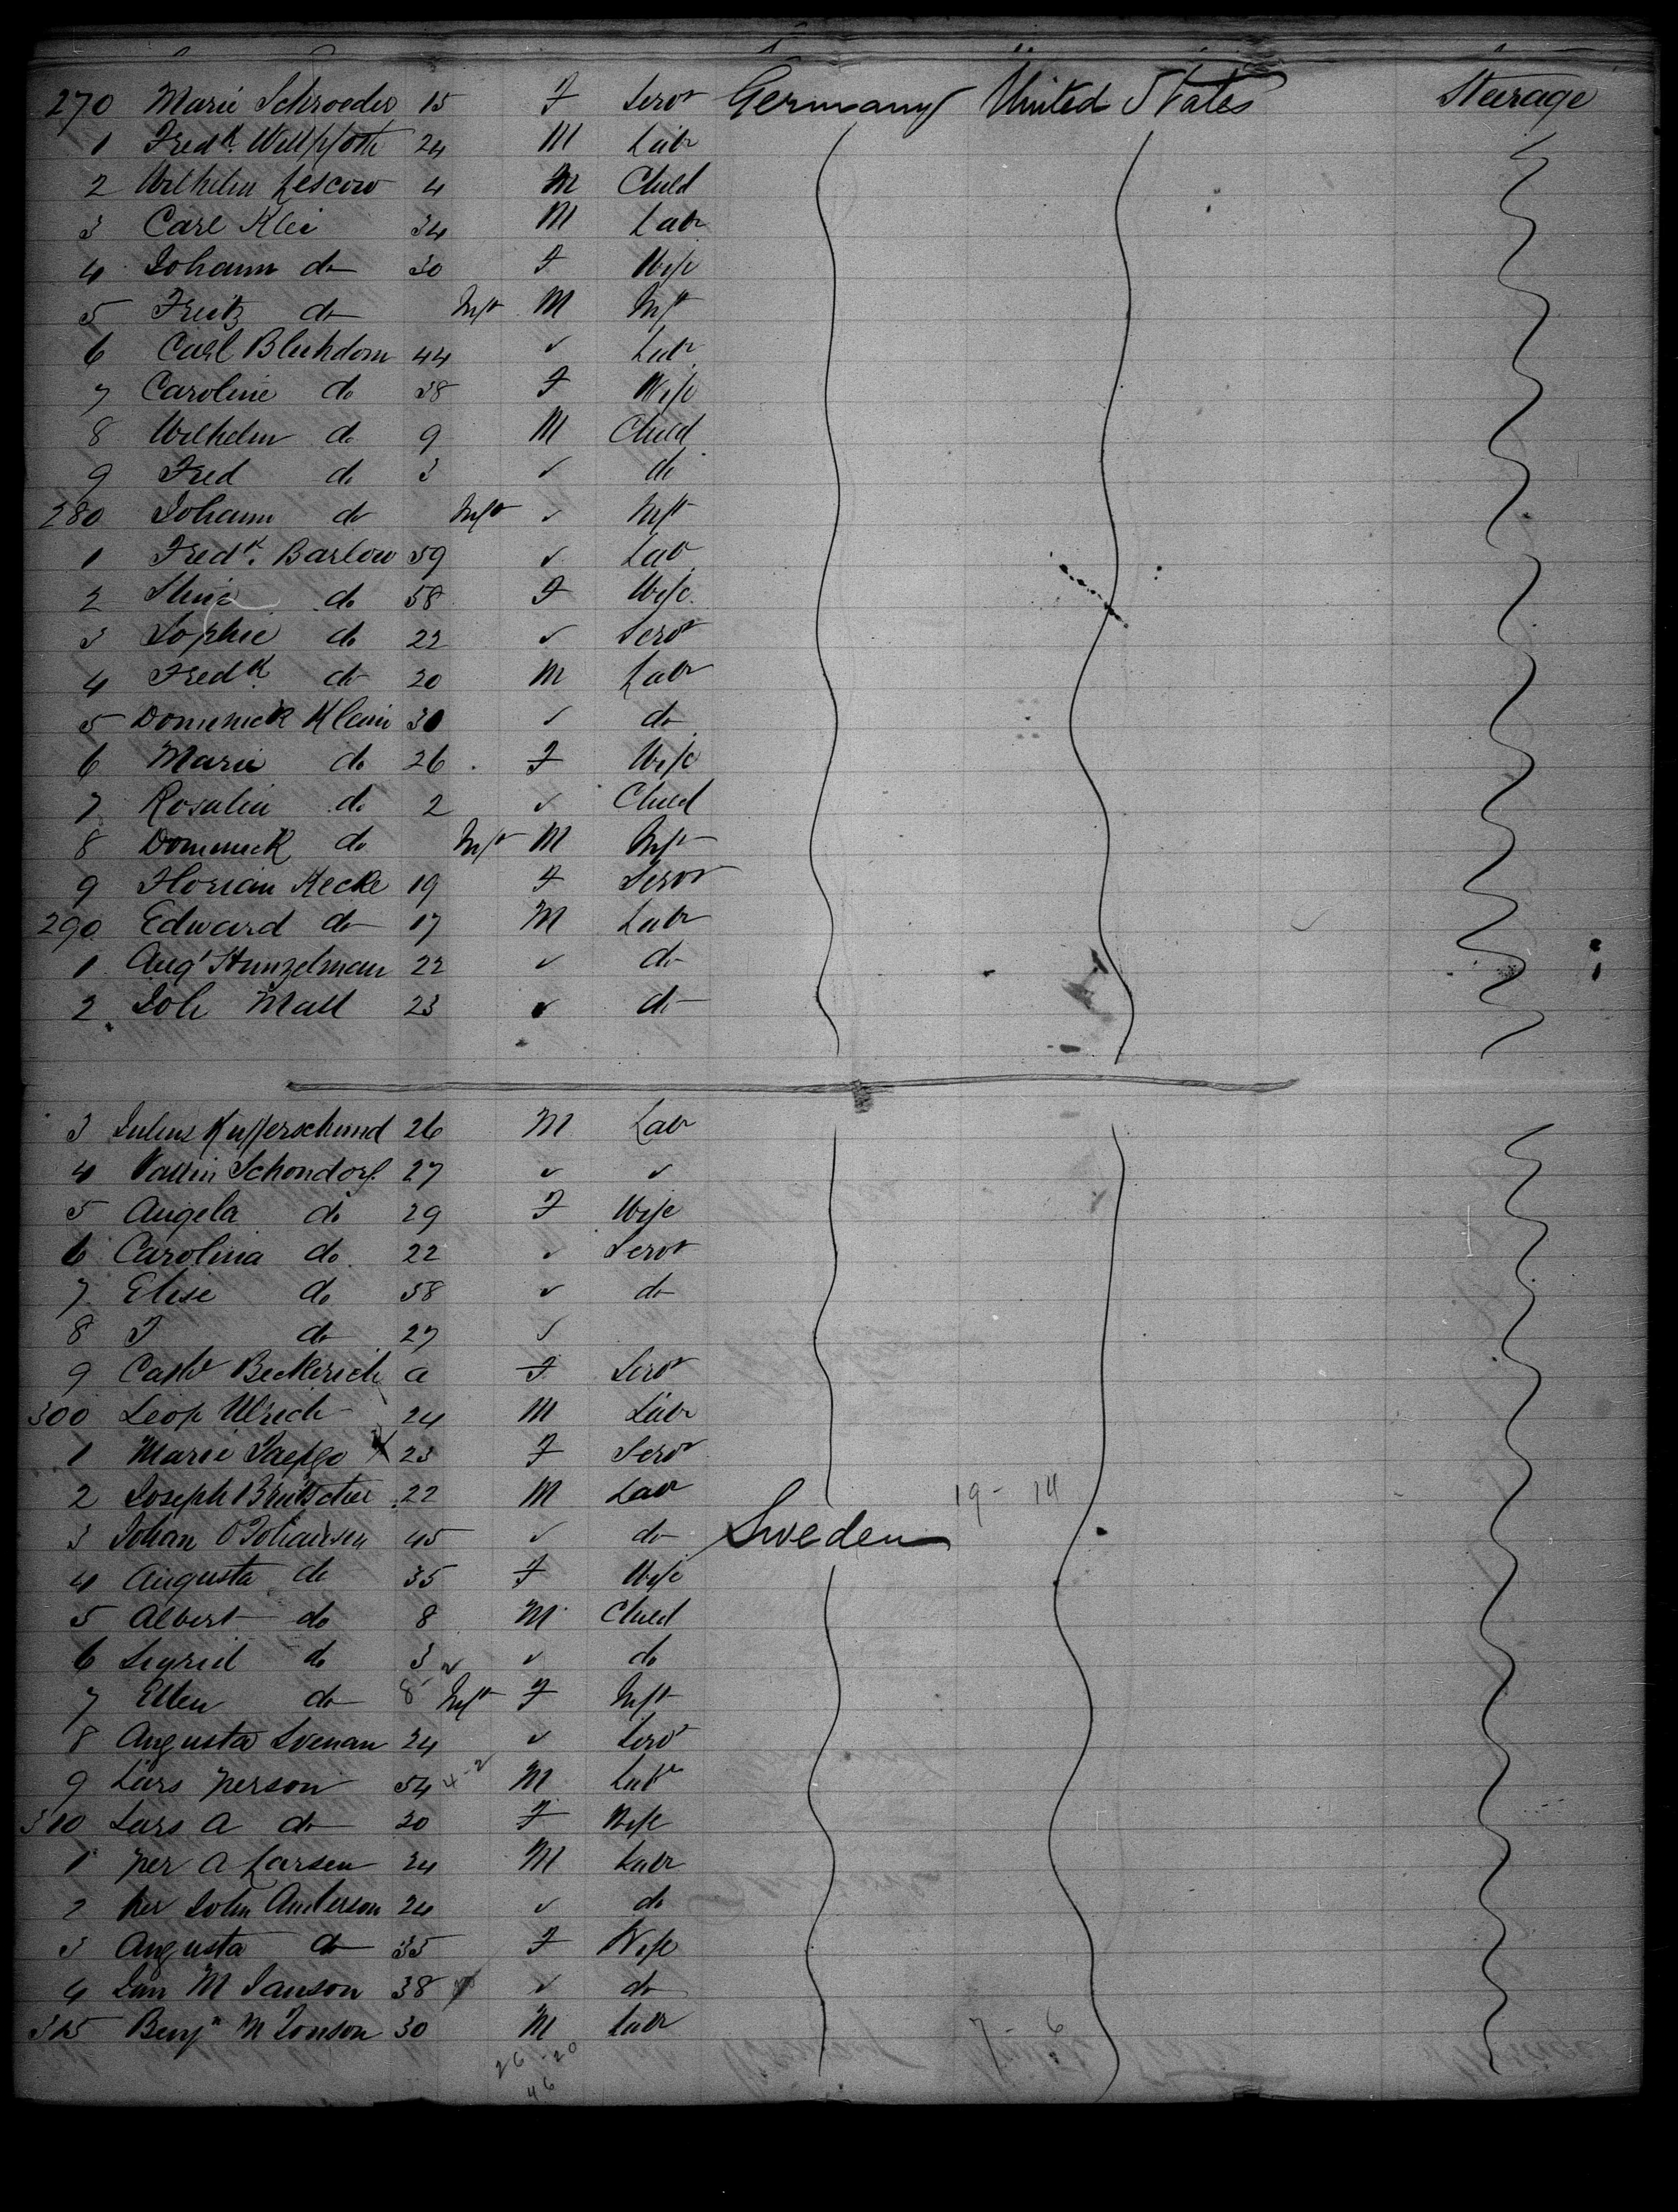 270 Marie Schroeder 15 F Servt Germany United States Steerage
1 Fredk. Wellpfoth 24 M Labr
2 Wilhelm Lescow 4 M Child
3 Carl Klei 34 M Labr
4 Johann do 30 F Wife
5 Freitz do Inft M Inft
6 Carl Blechdom 44 ✓ Labr
7 Caroline do 38 F Wife
8 Wilhelm do 9 M Child
9 Fred do 3 ✓ do
280 Johann do Inft ✓ Inft
1 Fredk. Barlow 59 ✓ Labr
2 do 58 F Wife
3 Sophie do 22 ✓ Servt
4 Fredk do 20 M Labr
5 Dominick Klein 30 ✓ do
6 Marie do 26 F Wife
7 Rosalia do 2 ✓ Child
8 Dominick do Inft M Inft
9 Florian Kecke 19 F Servt
290 Edward do 17 M Labr
1 Augt Hunzelman 22 ✓ do
2 Joh Mall 23 ✓ do
3 Julius Kufferschmid 26 M Labr
4 Schondorf 27 ✓ ✓
5 Angela do 29 F Wife
6 Carolina do 22 ✓ Servt
7 Elise do 58 ✓ do
8 J do 27 ✓
9 Beckerich a F Servt
300 Leop Ulrich 24 M Labr
1 Marie 23 F Servt
2 Joseph 22 M Labr 19 - 14
3 Johan O Johansen 45 ✓ do Sweden
4 Augusta do 35 F Wife
5 Albert do 8 M Child
6 Sigrid do 3 ✓ do
7 Ellen do 8 Inft F Inft
8 Augusta Svenan 24 ✓ Servt
9 Lars Person 54 M Labr
310 Lars A do 20 F Wife
1 Per A Larsen 24 M Labr
2 Per John Anderson 24 ✓ do
3 Augusta do 35 F Wife
4 M Janson 38 ✓ do
315 Benjn M Jonson 30 M Labr 7 - 6
26 - 20
46